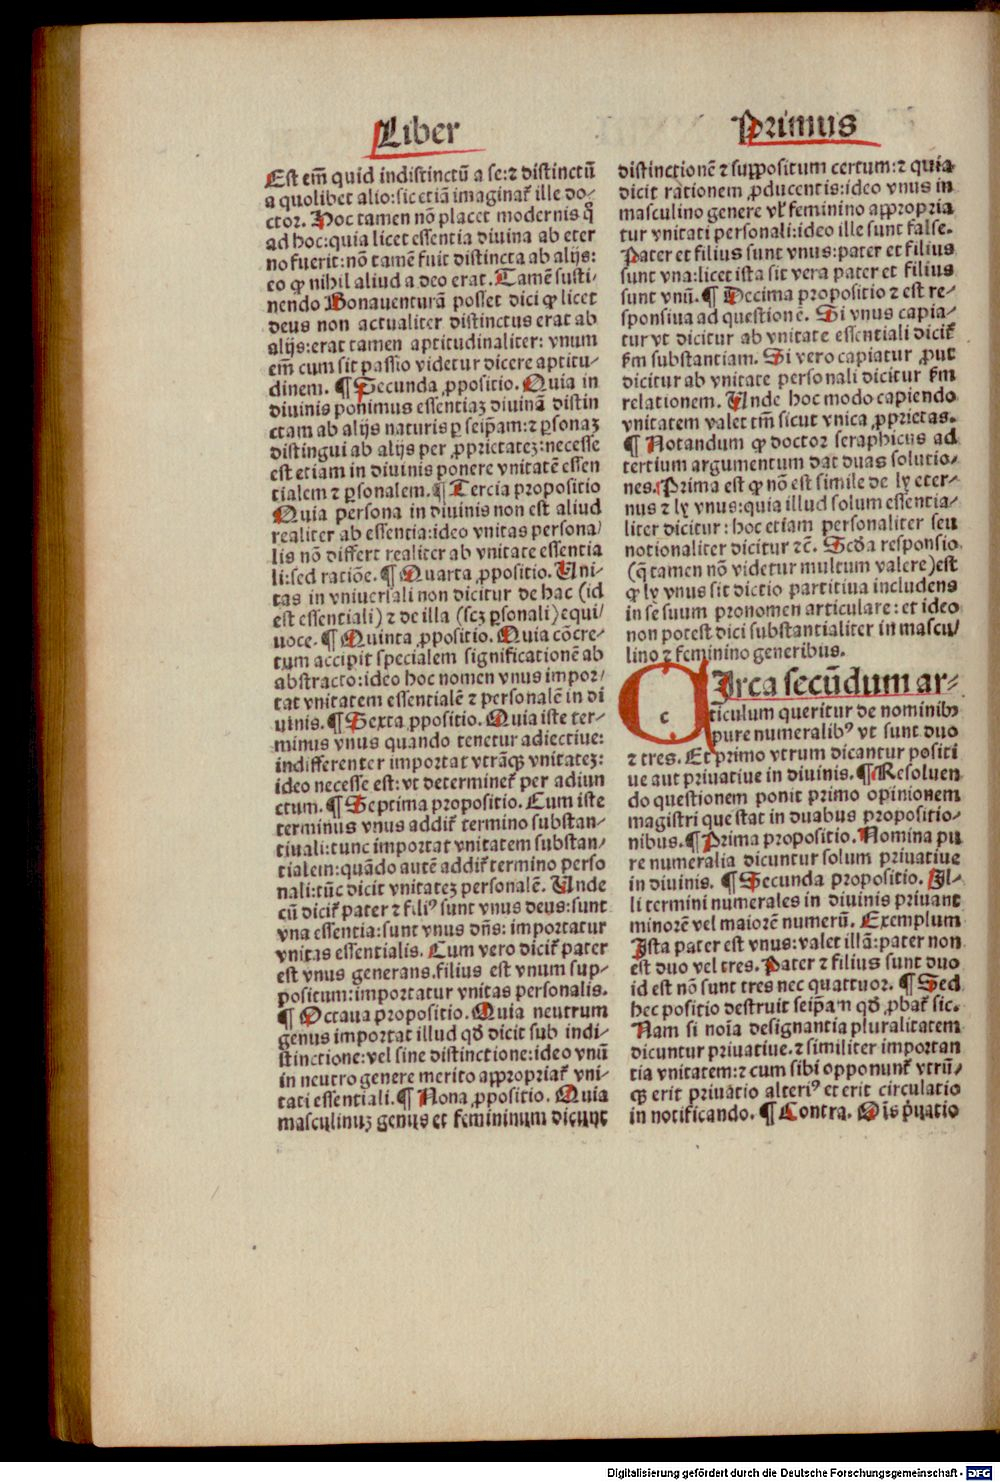 Liber
Primus
Est em̄ quid indistinctū a se:⁊ distinctū
a quolibet alio:sic etiā imaginat᷑ ille do⸗
ctor. Hoc tamen nō placet modernis q̄
ad hoc:quia licet essentia diuina ab eter
no fuerit:nō tamē fuit distincta ab alijs:
eo ꝙ nihil aliud a deo erat. Tamē susti⸗
nendo Bonauenturā posset dici ꝙ licet
deus non actualiter distinctus erat ab
alijs:erat tamen aptitudinaliter: vnum
em̄ cum sit passio videtur dicere aptitu⸗
dinem. ¶ Secunda ꝓpositio. Quia in
diuinis ponimus essentiaꝫ diuinā distin
ctam ab alijs naturis ꝑ seip̄am:⁊ ꝑsonaꝫ
distingui ab alijs per ꝓprietateꝫ:necesse
est etiam in diuinis ponere vnitatē essen
tialem ⁊ ꝑsonalem. ¶ Tercia propositio
Quia persona in diuinis non est aliud
realiter ab essentia:ideo vnitas persona⸗
lis nō differt realiter ab vnitate essentia
li:sed ratiōe. ¶ Quarta ꝓpositio. Uni⸗
tas in vniuersali non dicitur de hac (id
est essentiali) ⁊ de illa (scꝫ ꝑsonali) equi⸗
uoce. ¶ Quinta ꝓpositio. Quia cōcre⸗
tum accipit specialem significationē ab
abstracto:ideo hoc nomen vnus impor⸗
tat vnitatem essentialē ⁊ personalē in di
uinis. ¶ Sexta ꝓpositio. Quia iste ter⸗
minus vnus quando tenetur adiectiue:
indifferenter importat vtrāqꝫ vnitateꝫ:
ideo necesse est: vt determinet᷑ per adiun
ctum. ¶ Septima propositio. Cum iste
terminus vnus addit᷑ termino substan⸗
tiuali:tunc importat vnitatem substan⸗
tialem:quādo autē addit᷑ termino perso
nali:tūc dicit vnitateꝫ personalē. Unde
cū dicit᷑ pater ⁊ filiꝰ sunt vnus deus:sunt
vna essentia:sunt vnus dn̄s: importatur
vnitas essentialis. Cum vero dicit᷑ pater
est vnus generans.filius est vnum sup⸗
positum:importatur vnitas personalis.
¶ Octaua propositio. Quia neutrum
genus importat illud qd̄ dicit sub indi⸗
stinctione:vel sine distinctione:ideo vnū
in neutro genere merito appropriat᷑ vni⸗
tati essentiali. ¶ Nona ꝓpositio. Quia
masculinuꝫ genus et femininum dicunt
distinctionē ⁊ suppositum certum:⁊ quia
dicit rationem ꝓducentis:ideo vnus in
masculino genere vl᷑ feminino appropria
tur vnitati personali:ideo ille sunt false.
Pater et filius sunt vnus:pater et filius
sunt vna:licet ista sit vera pater et filius
sunt vnū. ¶ Decima propositio ⁊ est re⸗
sponsiua ad questionē. Si vnus capia⸗
tur vt dicitur ab vnitate essentiali dicit᷑
ẜm substantiam. Si vero capiatur ꝓut
dicitur ab vnitate personali dicitur ẜm
relationem. Unde hoc modo capiendo
vnitatem valet tm̄ sicut vnica ꝓprietas.
¶ Notandum ꝙ doctor seraphicus ad
tertium argumentum dat duas solutio⸗
nes. Prima est ꝙ nō est simile de ly eter⸗
nus ⁊ ly vnus:quia illud solum essentia⸗
liter dicitur: hoc etiam personaliter seu
notionaliter dicitur ⁊c̄. Scd̄a responsio
(q̄ tamen nō videtur multum valere) est
ꝙ ly vnus sit dictio partitiua includens
in se suum pronomen articulare: et ideo
non potest dici substantialiter in mascu⸗
lino ⁊ feminino generibus.
CIrca secūdum ar⸗
c
ticulum queritur de nominibꝰ
pure numeralibꝰ vt sunt duo
⁊ tres. Et primo vtrum dicantur positi
ue aut priuatiue in diuinis. ¶ Resoluen
do questionem ponit primo opinionem
magistri que stat in duabus propositio⸗
nibus. ¶ Prima propositio. Nomina pu
re numeralia dicuntur solum priuatiue
in diuinis. ¶ Secunda propositio. Il⸗
li termini numerales in diuinis priuant
minorē vel maiorē numerū. Exemplum
Ista pater est vnus: valet illā: pater non
est duo vel tres. Pater ⁊ filius sunt duo
id est nō sunt tres nec quattuor. ¶ Sed
hec positio destruit seip̄am qd̄ ꝓbat᷑ sic.
Nam si noīa designantia pluralitatem
dicuntur priuatiue.⁊ similiter importan
tia vnitatem:⁊ cum sibi opponunt᷑ vtrū⸗
qꝫ erit priuatio alteriꝰ et erit circulatio
in notificando. ¶ Contra. Oīs p̄uatio
Digitalisierung gefördert durch die Deutsche Forschungsgemeinschaft - DFG